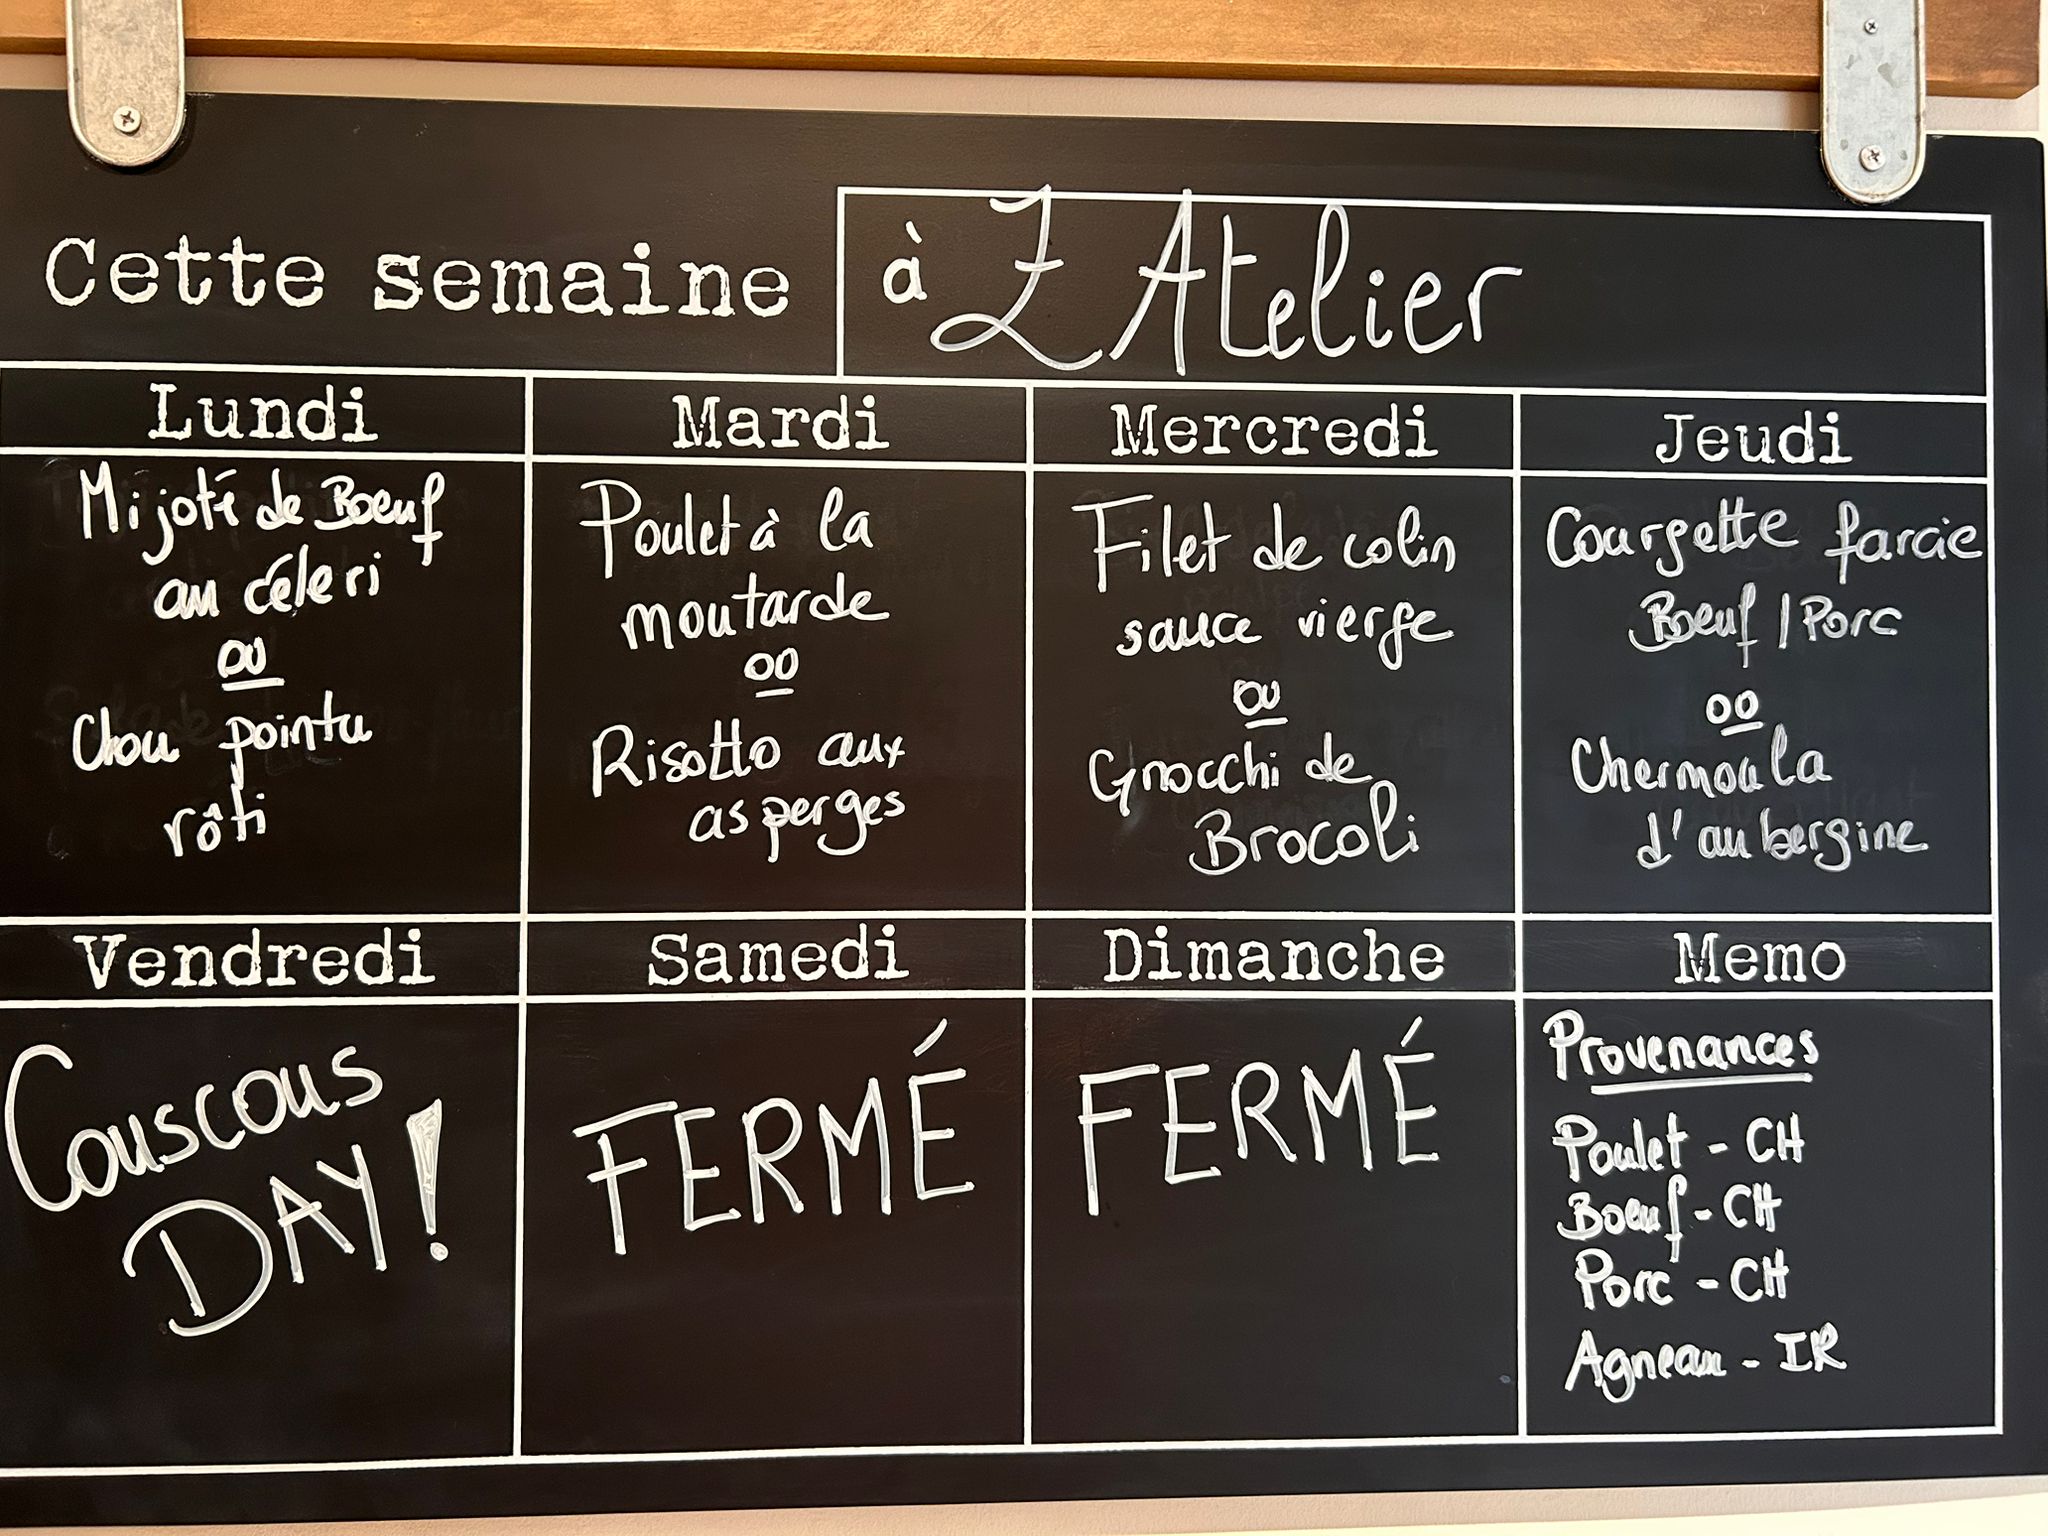 Cette semaine à L'Atelier
Lundi
Mijoté de Boeuf
au céleri
ou
Chou pointu
rôti
Mardi
Poulet à la
moutarde
ou
Risotto aux
asperges
Mercredi
Filet de colin
sauce vierge
ou
Gnocchi de
Brocoli
Jeudi
Courgette farcie
Boeuf / Porc
ou
Chermoula
d'aubergine
Vendredi
Couscous
DAY!
Samedi
FERMÉ
Dimanche
FERMÉ
Memo
Provenances
Poulet - CH
Boeuf - CH
Porc - CH
Agneau - IR